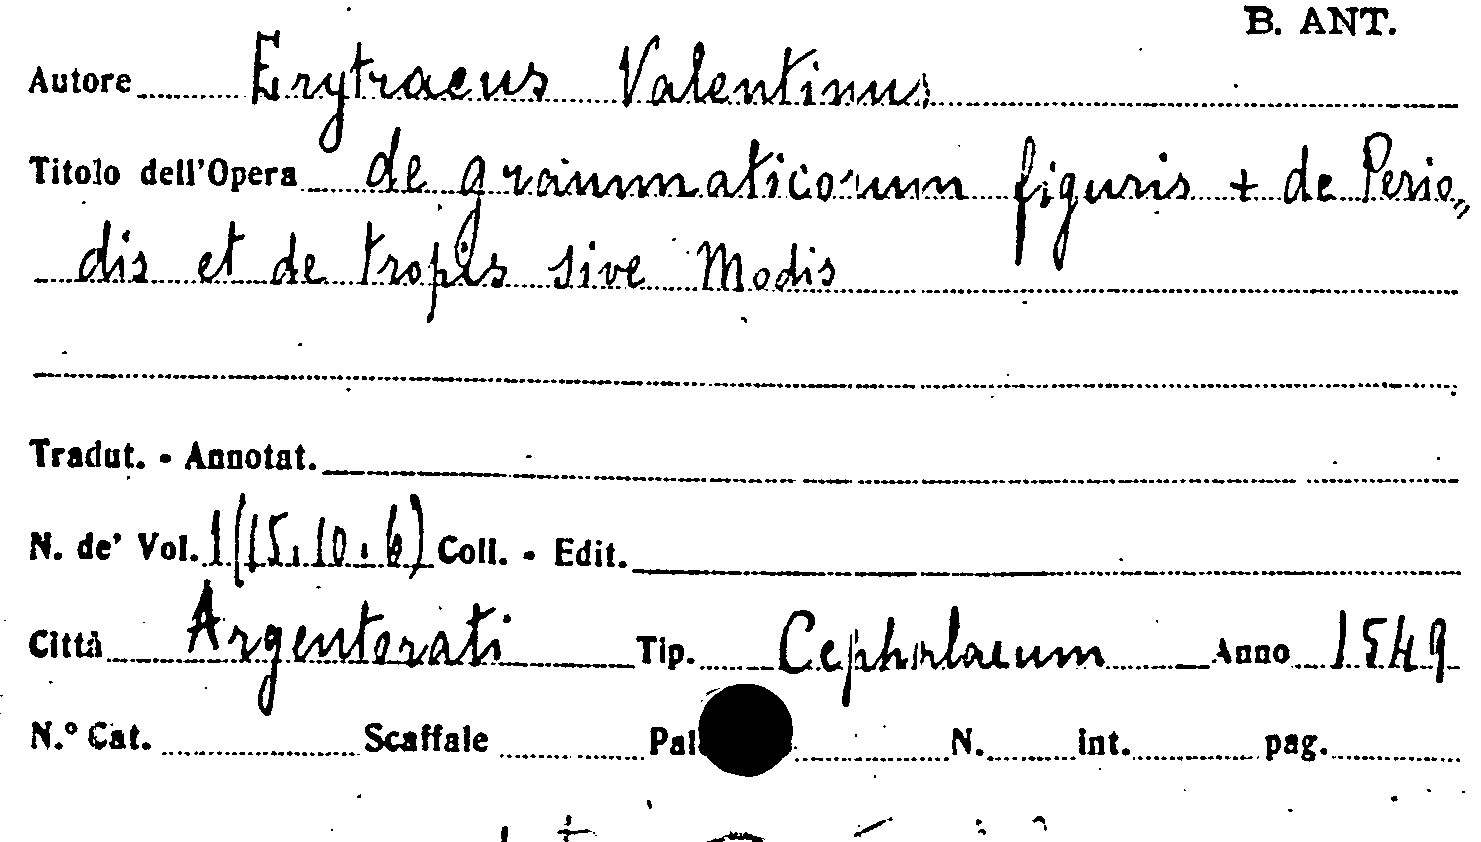 B. ANT.
Autore Erytraeus Valentinus
Titolo dell'Opera de grammaticorum figuris + de Perio„
dis et de tropis sive Modis
Tradut. - Annotat.
N. de' Vol. 1 (15.10.6) Coll. - Edit.
Città Argentorati Tip. Cephalaeum Anno 1549
N.° Cat. Scaffale Pal N. int. pag.